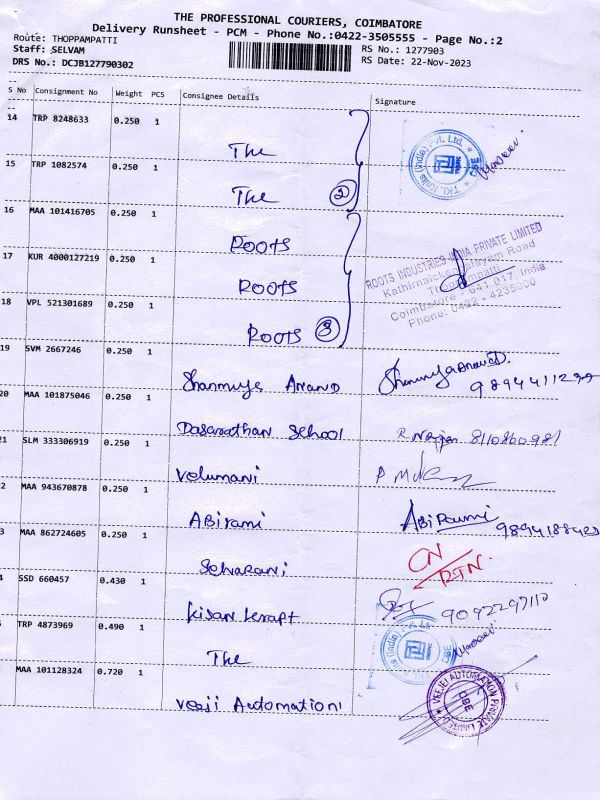 THE PROFESSIONAL COURIERS, COIMBATORE
Delivery Runsheet - PCM - Phone No.:0422-3505555 - Page No.:2
Route: THOPPAMPATTI
Staff: SELVAM RS No.: 1277903
DRS No.: DCJB127790302 RS Date: 22-Nov-2023
S No Consignment No Weight PCS Consignee Details Signature
14 TRP 8248633 0.250 1
The
15 TRP 1082574 0.250 1
The 2
16 MAA 101416705 0.250 1
ROOTS
17 KUR 4000127219 0.250 1
ROOTS
18 VPL 521301689 0.250 1
ROOTS 3
ROOTS INDUSTRIES INDIA PRIVATE LIMITED
Coimbatore - 641 017. India
Phone: 0422 - 4235000
19 SVM 2667246 0.250 1
Shanmuga Anand 9894411299
20 MAA 101875046 0.250 1
Dasarathan School 8110860981
21 SLM 333306919 0.250 1
Velumani
2 MAA 943670878 0.250 1
Abirami Abirami 9894188423
3 MAA 862724605 0.250 1
Selvarani CN/RTN.
4 SSD 660457 0.430 1
Kisan Kraft 9092297110
5 TRP 4873969 0.490 1
The
MAA 101128324 0.720 1
Veeji Automation
VEEJEI AUTOMATION PRIVATE LIMITED
CBE